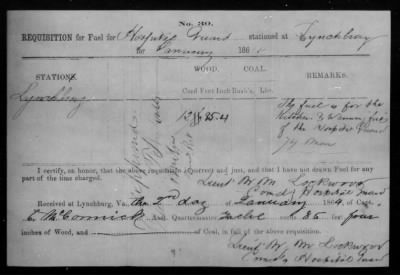 No. 30.
REQUISITION for Fuel for Hospital Guard stationed at Lynchburg
for January 186
STATIONS. WOOD. COAL. REMARKS.
Cord Feet Inch Bush's. Lbs.
Lynchburg
The fuel is for the
Kitchen & Warming fire
of the Hospital Guard
74 Men
I certify, on honor, that the above requisition is correct and just, and that I have not drawn Fuel for any
part of the time charged.
Lieut W M Lockwood
Comdg Hospital Guard
Received at Lynchburg, Va., the 2nd day of January 1864, of Capt.
C. McCormick Ass't Quartermaster Twelve C. 85 for four
inches of Wood, and of Coal, in full of the above requisition.
Lieut W M Lockwood
Comdg Hospital Guard